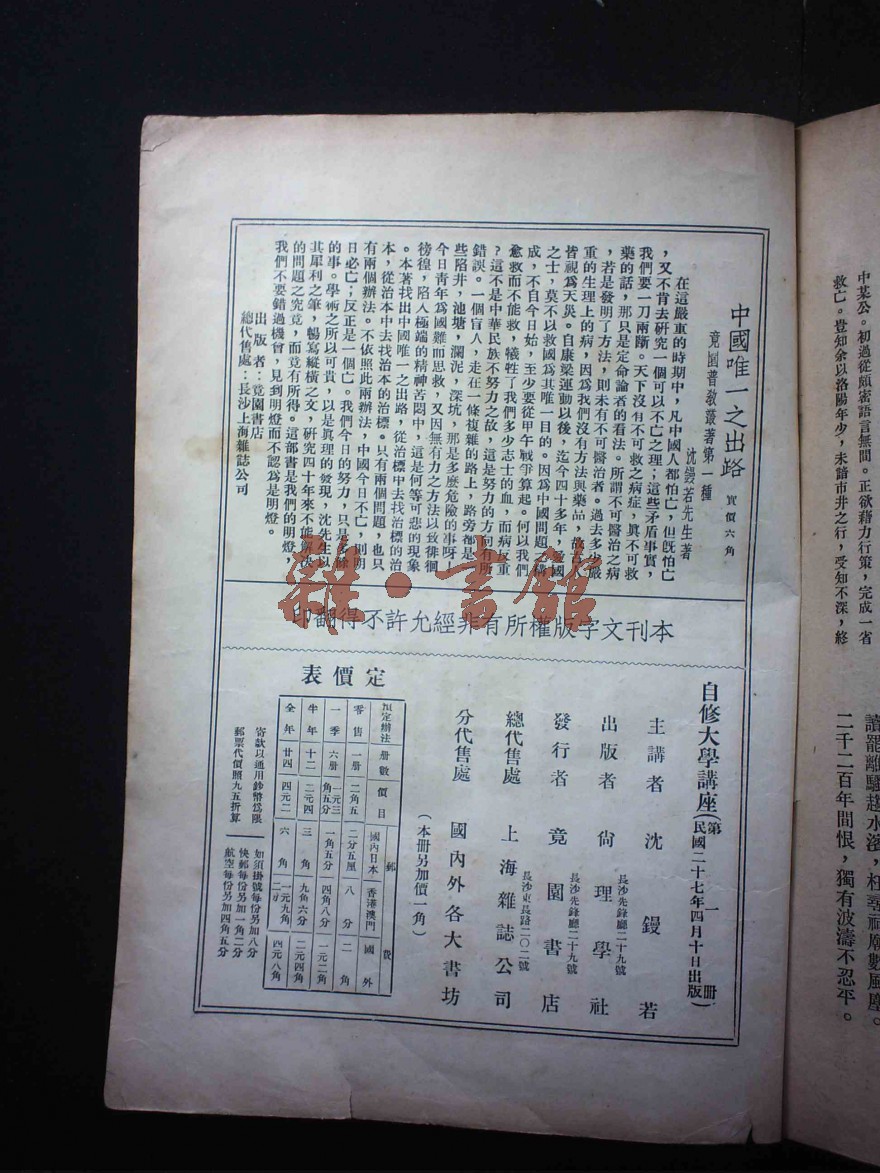 中國唯一之出路 實價六角
竟園普敎叢著第一種
沈鏝若先生著
在這嚴重的時期中，凡中國人都怕亡，但旣怕亡
，又不肯去硏究一個可以不亡之理；這些矛盾事實，
我們要一刀兩斷。天下沒有不可救之病症，眞不可救
藥的話，那只是定命論者的看法。所謂不可醫治之病
，若是發明了方法，則未有不可醫治者。過去多少嚴
重的生理上的病，因為我們沒有方法與藥品，故
皆視為天災。自康梁運動以後，迄今四十多年，愛國
之士，莫不以救國為其唯一目的。因為中國問題，構
成，不自今日始，至少要從甲午戰爭算起。何以我們
愈救而不能救，犧牲了我們多少志士的血，而病反重
？這不是中華民族不努力之故，這是努力的方向有所
錯誤。一個盲人，走在一條複雜的路上，路旁都是
些陷井，池塘，瀾泥，深坑，那是多麼危險的事呀
今日靑年為國難而思救，又因無有力之方法以致徘徊
徬徨，陷入極端的精神苦悶中，這是何等可悲的現象
。本著找出中國唯一之出路，從治標中去找治標的治
本，從治本中去找治本的治標。只有兩個問題，也只
有兩個辦法。不依照此兩辦法，中國今日不亡，則明
日必亡；反正是一個亡。我們今日的努力，只是多餘
的事。學術之所以可貴，以是眞理的發現，沈先生以
其犀利之筆，暢寫縱橫之文，硏究四十年來不能解決
的問題之究竟，而竟有所得。這部書是我們的明燈，
我們不要錯過機會，見到明燈而不認為是明燈。
出版者：竟園書店
總代售處：長沙上海雜誌公司
雜·書館
本刊文字版權所有非經允許不得翻印
自修大學講座（第一冊 民國二十七年四月十日出版）
主講者 沈鏝若
出版者 尙理學社 長沙先鋒廳二十九號
發行者 竟園書店 長沙先鋒廳二十九號
總代售處 上海雜誌公司 長沙東長路二〇二號
分代售處 國內外各大書坊
（本冊另加價一角）
定價表
預定辦法 冊數 價目 郵費 國內日本 香港澳門 國外
零售 一冊 二角五 二分五厘 八分 二角
一季 六冊 一元三角五分 一角五分 四角八分 一元二角
半年 十二 二元四 三角 九角六分 二元四角
全年 廿四 四元二 六角 一元九角二分 四元八角
寄款以通用鈔幣為限
郵票代價照九五折算
如須掛號每份另加八分
快郵每份另加一角二分
航空每份另加四角五分
中某公。初過從頗密語言無間。正欲藉力行策，完成一省
救亡。豈知余以洛陽年少，未諳市井之行，受知不深，終
讀罷離騷趁水濱，枉尋祠廟數風塵。
二千二百年間恨，獨有波濤不忍平。